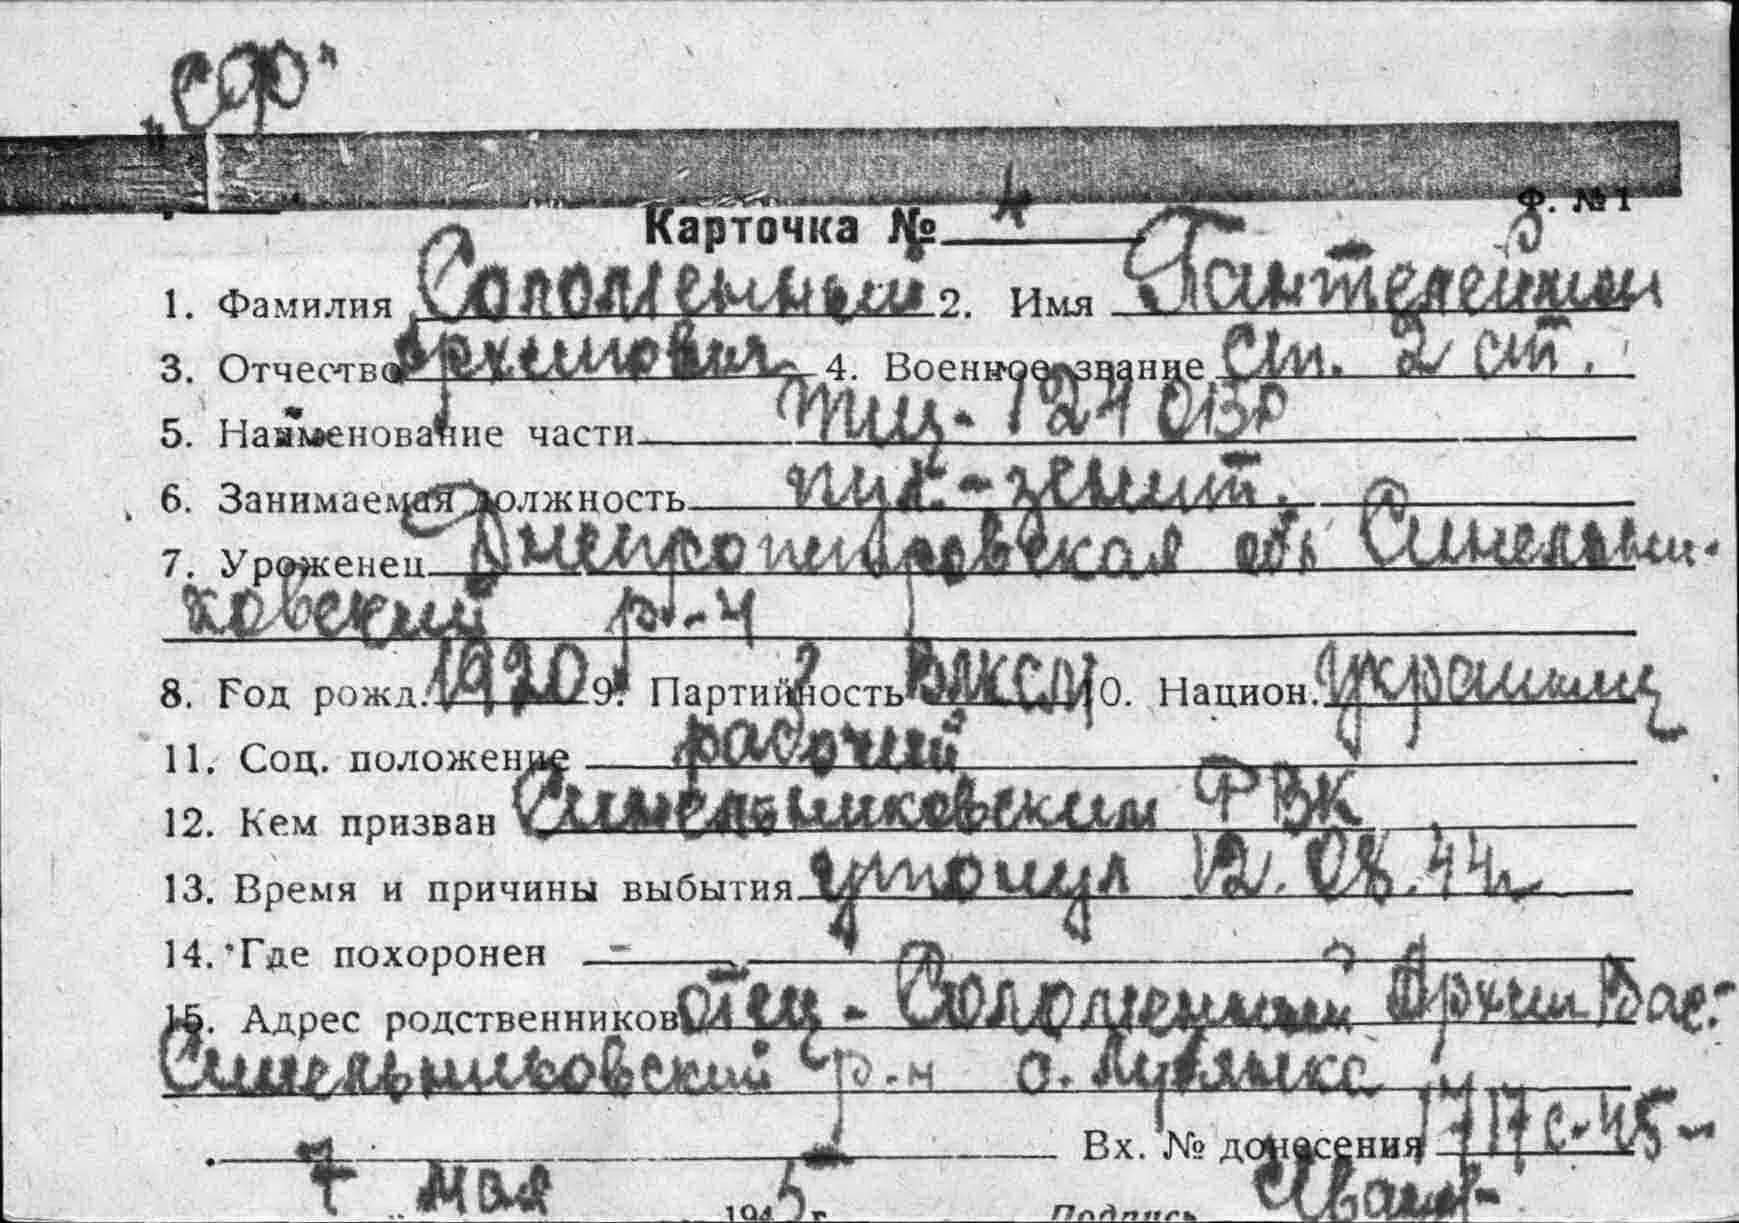 „СФ"
Ф. № 1
Карточка №
1. Фамилия Соломенный 2. Имя Пантелеймон
3. Отчество Архипович 4. Военное звание ст. 2 ст.
5. Наименование части тщ-124 ОВР
6. Занимаемая должность пул.-зенит.
7. Уроженец Днепропетровская обл Синельни-
ковский р-н
8. Год рожд. 1920 9. Партийность ВЛКСМ 10. Национ. украинец
11. Соц. положение рабочий
12. Кем призван Синельниковским РВК
13. Время и причины выбытия утонул 12.08.44г
14. Где похоронен -
15. Адрес родственников отец - Соломенный Архип Вас.-
Синельниковский р-н с.
Вх. № донесения 1717с-45
7 мая 1945 г. Подпись